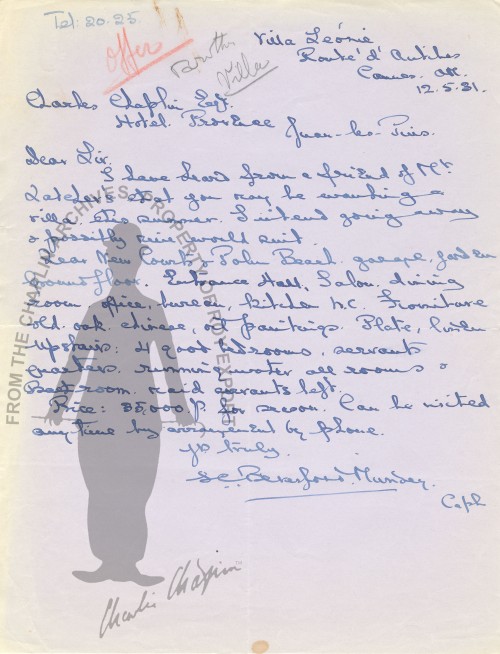 Tel: 20.25.
offer
Villa
Villa Leónie
Route d'Antibes
Cannes. AM.
12.5.31.
Charles Chaplin Esq.
Hotel. Provence
Juan-les-Pins.
Dear Sir.
I have heard from a friend of Mr
that you may be wanting a
villa the summer. I intend going away
& possibly mine would suit.
Near New Courts. Palm Beach. garage, garden
Ground floor. Entrance Hall, Salon, dining
room office, bureau, kitchen h.c. Furniture
old oak, chinese, oil paintings. Plate, linen
Upstairs: 4 good bedrooms, servants
quarters. running water all rooms &
Bath room. maid servants left.
Price: 35,000 f. for season. Can be visited
any time by arrangement by phone.
yrs truly.
Beresford Munday.
Caph
Charlie Chaplin
FROM THE CHAPLIN ARCHIVES - PROPERTY OF ROY EXPORT